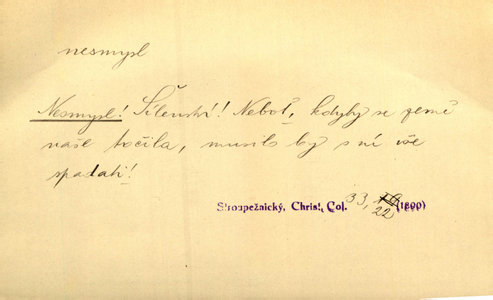 nesmysl
Nesmysl! Šílenství! Neboť, kdyby se země
naše točila, musilo by s ní vše
spadati!
Stroupežnický, Christ. Col. 33, 22 (1890)